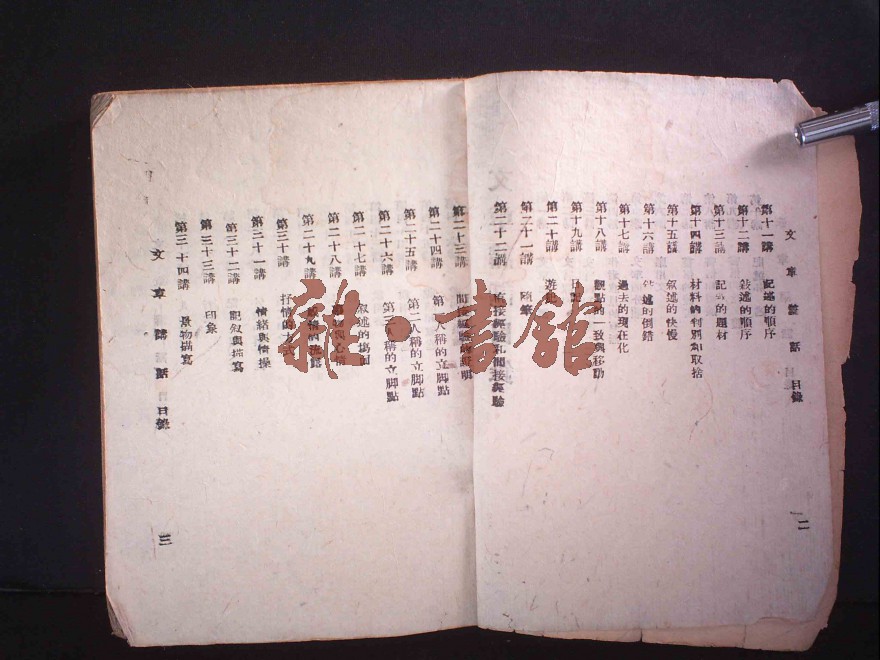 文章講話 目錄
第十一講 記述的順序
第十二講 敍述的順序
第十三講 記述的題材
第十四講 材料的判別和取捨
第十五講 叙述的快慢
第十六講 叙述的倒錯
第十七講 過去的現在化
第十八講 觀點的一致與移動
第十九講 日記
第二十講 遊記
第二十一講 隨筆
第二十二講 直接經驗和間接經驗
二
第二十三講 間接經驗的
第二十四講 第一人稱的立脚點
第二十五講 第二人稱的立脚點
第二十六講 第三人稱的立脚點
第二十七講 叙述的場面
第二十八講 事物與心情
第二十九講 的流露
第三十講 抒情的方式
第三十一講 情緒與情操
第三十二講 記叙與描寫
第三十三講 印象
第三十四講 景物描寫
文章講話 目錄
三
雜·書館